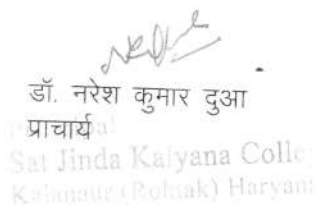 डॉ. नरेश कुमार दुआ
प्राचार्य
Principal
Sat Jinda Kalyana Colle
Kalanaur (Rohtak) Haryana